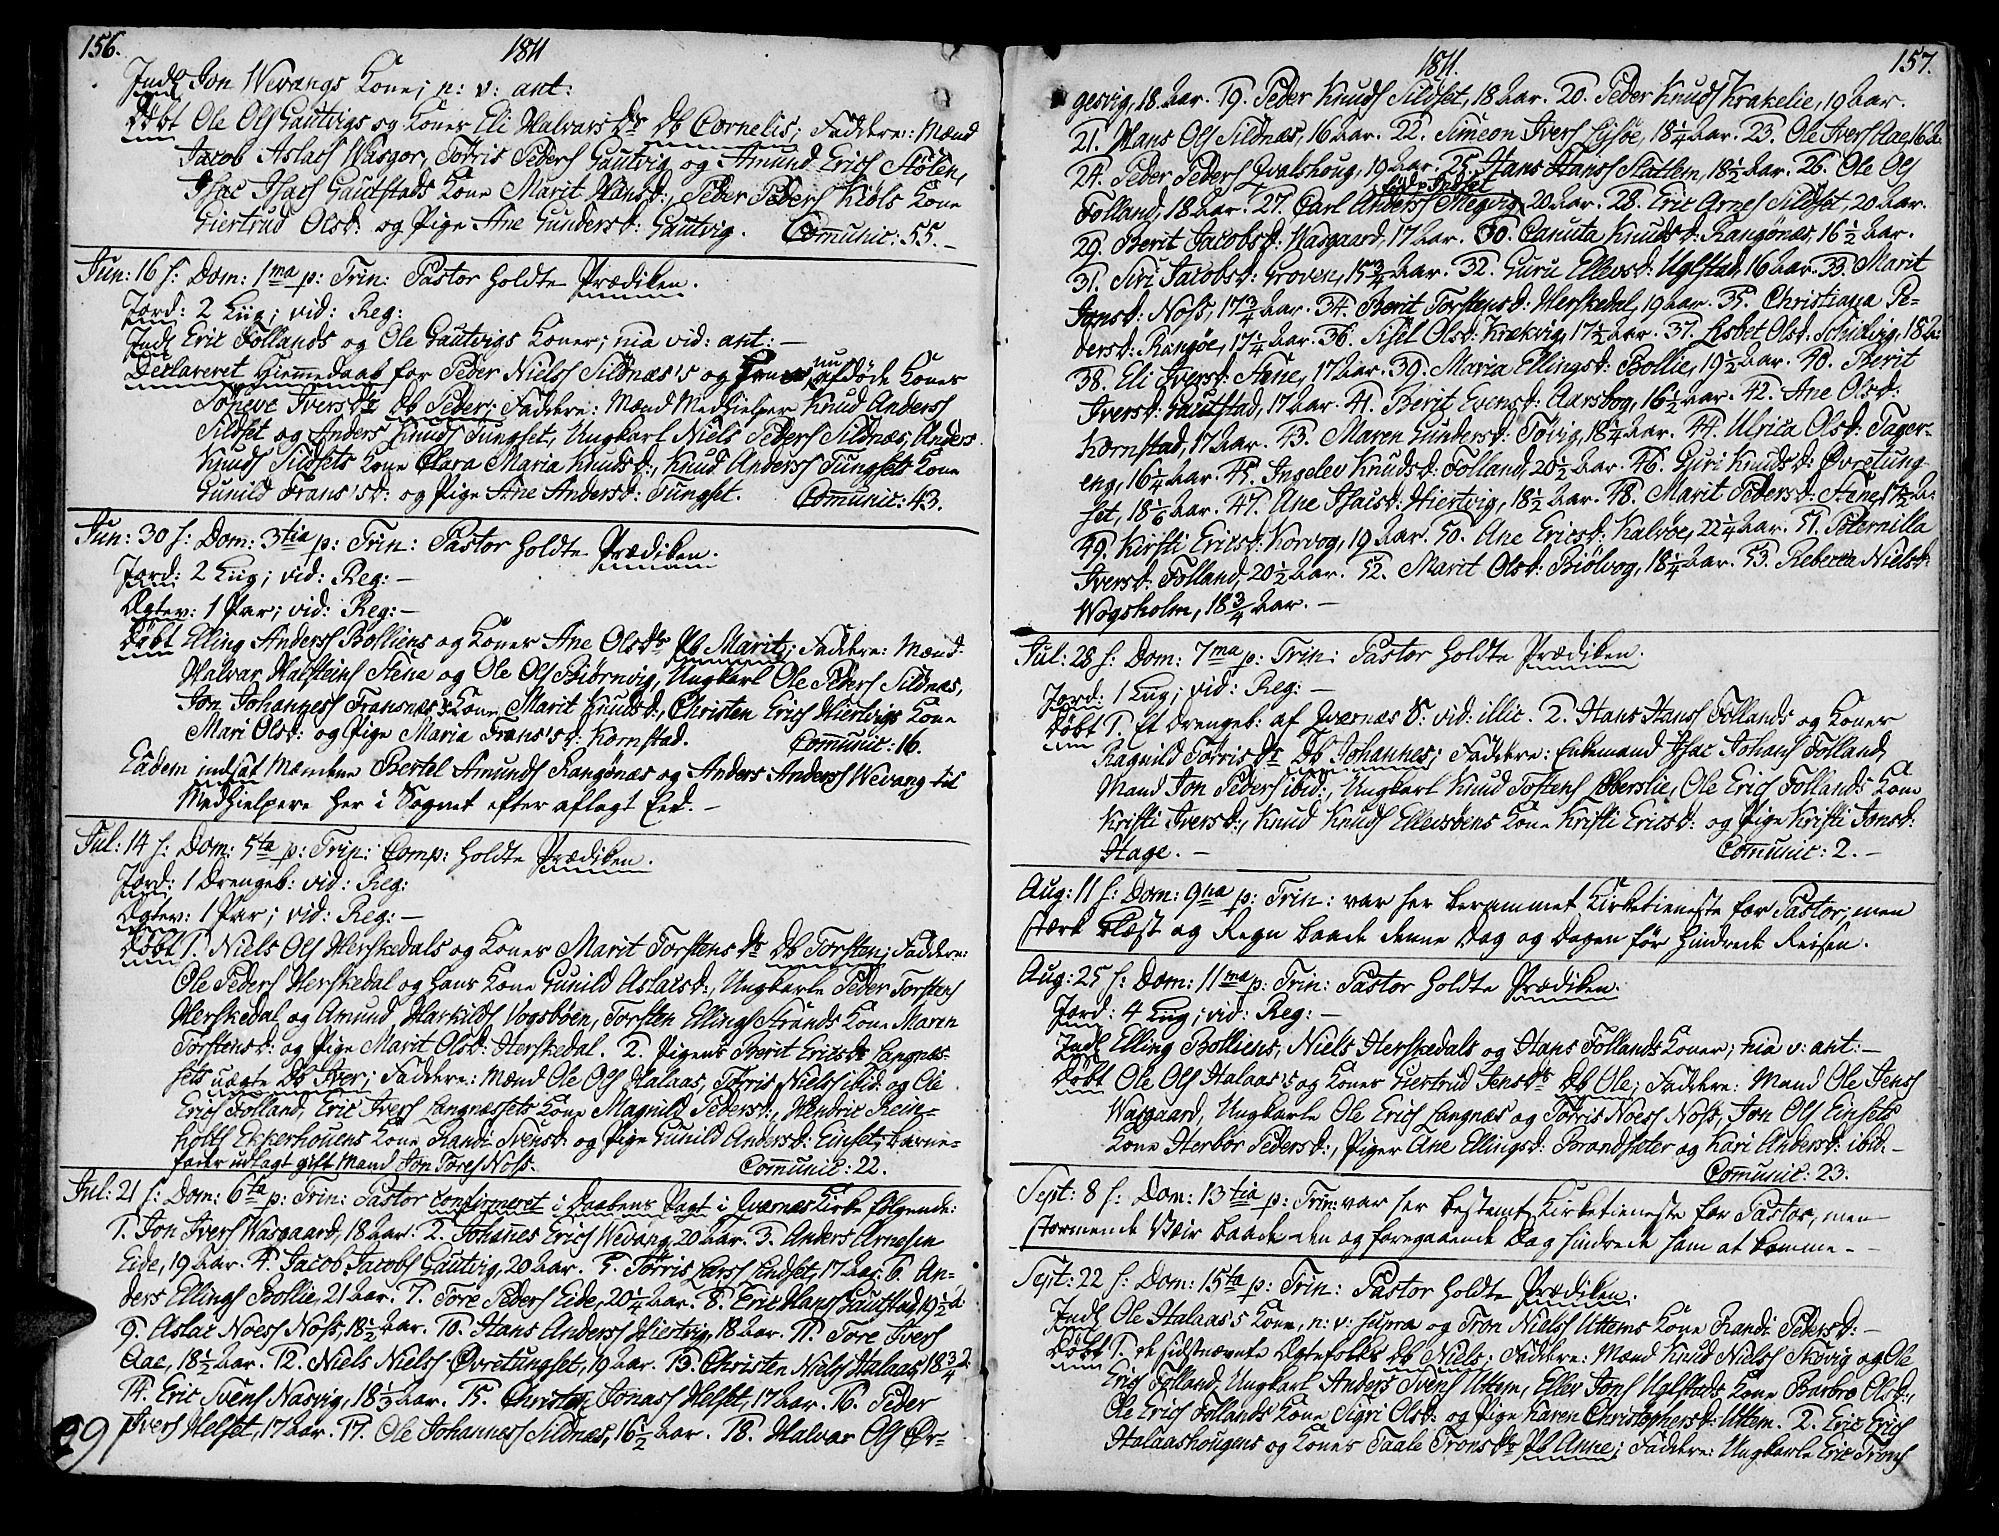 156.
1811
Indl Jon Wevangs Kone; n: v: ant:
Døbt Ole Ols Gautvigs og Kones Eli Halvars Dr Db Cornelis; Faddere: Mænd
Jacob Aslacs Wasgor, Torris Peders Gautvig og Amund Erics Stølen,
Isac Isacs Gautstads Kone Marit Hansd:, Peder Peders Kiøls Kone
Giertrud Olsd: og Pige Ane Gundersd: Gautvig. Comunic: 55.
Jun: 16 f: Dom: 1ma p: Trin: Pastor holdte Prædiken.
Jord: 2 Liig; vid: Reg:
Indl Eric Follands og Ole Gautvigs Koner; nia vid: ant: —
Declareret Hiemedaab for Peder Niels Sildnæs's og nu afdøde Kones
Iversdr Db Peder; Faddere: Mænd Medhielper Knud Anders
Sildset og Anders Knuds Tungset, Ungkarl Niels Peders Sildnæs, Anders
Knuds Sildsets Kone Clara Maria Knudsd:, Knud Anders Tungsets Kone
Gunild Frans'sd: og Pige Ane Andersd: Tungset. Comunic: 43.
Jun: 30 f: Dom: 3tia p: Trin: Pastor holdte Prædiken.
Jord: 2 Liig; vid: Reg: —
Ægtev: 1 Par; vid: Reg: —
Døbt Elling Anders Bolliens og Kones Ane Olsdr Pb Marit; Faddere: Mænd
Halvar Halsteins Stene og Ole Ols Biørnvig, Ungkarl Ole Peders Sildnæs,
Jon Johannes Fransnæs's Kone Marit Knudsd:, Christen Erics Hiertvigs Kone
Mari Olsd: og Pige Maria Frans'sd: Kornstad. Comunic: 16.
Eadem indsat Mændene Bertel Amunds Rangønæs og Anders Anders Wevang til
Medhielpere her i Sognet efter aflagt Eed. —
Jul: 14 f: Dom: 5ta p: Trin: Comp: holdte Prædiken.
Jord: 1 Drengeb: vid: Reg:
Ægtev: 1 Par; vid: Reg: —
Døbt 1. Niels Ols Herskedals og Kones Marit Torstens dr Db Torsten; Faddere:
Ole Peders Herskedal og hans Kone Gunild Aslacsd:, Ungkarle Peder Torstens
Herskedal og Amund Harkilds Vogsbøen, Torsten Ellings Strands Kone Maren
Torstensd: og Pige Marit Olsd: Herskedal. 2. Pigens Berit Ericsdr Langnæs-
sets uægte Db Iver; Faddere: Mænd Ole Ols Halaas, Torris Niels ibid: og Ole
Erics Folland, Eric Ivers Langnæssets Kone Magnild Pedersd:, Hendric Rein-
holts Ekkerhouens Kone Randi Svensd: og Pige Gunild Andersd: Einset; Barne-
fader udlagt gift Mand Jon Tores Noss. Comunic: 22.
Jul: 21 f: Dom: 6ta p: Trin: Pastor confirmeret i Daabens Pagt i Qvernæs Kirke følgende:
1. Jon Ivers Wasgaard, 18 Aar. 2. Johanes Erics Wevang, 20 Aar. 3. Anders Arnesen
Eide, 19 Aar. 4. Jacob Jacobs Gautvig, 20 Aar. 5. Torris Lars Endset, 17 Aar. 6. An-
ders Ellings Bollie, 21 Aar. 7. Tore Peders Eide, 20 1/4 Aar. 8. Eric Hans Gautstad, 19 1/2 A
9. Aslac Noes Noss, 18 1/2 Aar. 10. Hans Anders Hiertvig, 18 Aar. 11. Tore Ivers
Aae, 18 1/2 Aar. 12. Niels Niels Øvretungset, 19 Aar. 13. Christen Niels Halaas, 18 3/4 A
14. Eric Svens Nasvig, 18 1/3 Aar. 15. Christen Jonas Helset, 17 Aar. 16. Peder
Ivers Helset, 17 Aar. 17. Ole Johannes Sildnæs, 16 1/2 Aar. 18. Halvar Ols Ør-
1811.
157.
gesvig, 18 Aar. 19. Peder Knuds Sildset, 18 Aar. 20. Peder Knuds Krakelie, 19 Aar.
21. Hans Ols Sildnæs, 16 Aar. 22. Simeon Ivers Lisøe, 18 1/4 Aar. 23. Ole Ivers Aae, 16 A.
24. Peder Peders Qvalshoug, 19 Aar. 25. Hans Hans Slatlem, 18 1/2 Aar. 26. Ole Ols
Folland, 18 Aar. 27. Carl Anders Megvig, 20 Aar. 28. Eric Arnes Sildset, 20 Aar.
29. Berit Jacobsd: Wasgaard, 17 Aar. 30. Canuta Knudsd: Rangønæs, 16 1/2 Aar.
31. Siri Jacobsd: Groven, 15 3/4 Aar. 32. Guru Ellevsd: Uglstad, 16 Aar. 33. Marit
Jonsd: Noss, 17 3/4 Aar. 34. Berit Torstensd: Herskedal, 19 Aar. 35. Christiana Pe-
dersd: Rangøe, 17 1/4 Aar. 36. Sisel Olsd: Krækvig, 17 1/2 Aar. 37. Lisbet Olsd: Schulvig, 18 A:
38. Eli Iversd: Stene, 17 Aar. 39. Maria Ellingsd: Bollie, 19 1/2 Aar. 40. Berit
Iversd: Gautstad, 17 Aar. 41. Berit Evensd: Aarsbog, 16 1/2 Aar. 42. Ane Olsd:
Kornstad, 17 Aar. 43. Maren Gundersd: Tøvig, 18 1/4 Aar. 44. Ulrica Olsd: Tager-
eng, 16 1/4 Aar. 45. Ingelev Knudsd: Folland, 20 1/2 Aar. 46. Guri Knudsd: Øvretung-
set, 18 1/6 Aar. 47. Ane Isacsd: Hiertvig, 18 1/2 Aar. 48. Marit Pedersd: Stene, 17 1/2 A:
49. Kirsti Ericsd: Korvog, 19 Aar. 50. Ane Ericsd: Kalvøe, 22 1/4 Aar. 51. Peternilla
Iversd: Folland, 20 1/2 Aar. 52. Marit Olsd: Biølvog, 18 1/4 Aar. 53. Rebecca Nielsd:
Wogsholm, 18 3/4 Aar. —
Jul: 28 f: Dom: 7ma p: Trin: Pastor holdte Prædiken.
Jord: 1 Liig; vid: Reg: —
Døbt 1. Et Drengeb: af Qvernæs S: vid: illic. 2. Hans Hans Follands og Kones
Ragnild Torrisdr Db Johannes; Faddere: Enkemand Isac Johans Folland,
Mand Jon Peders ibid:, Ungkarl Knud Tostens Oberslie, Ole Erics Follands Kone
Kristi Iversd:, Knud Knuds Ellevsøens Kone Kristi Ericsd: og Pige Kristi Jonsd:
Hage. — Comunic: 2. —
Aug: 11 f: Dom: 9na p: Trin: var her berammet Kirketieneste for Pastor; men
stærk Blæst og Regn baade denne Dag og Dagen før hindrede Reisen.
Aug: 25 f: Dom: 11ma p: Trin: Pastor holdte Prædiken.
Jord: 4 Liig; vid: Reg: —
Indl Elling Bolliens, Niels Herskedals og Hans Follands Koner; nia v: ant: —
Døbt Ole Ols Halaas's og Kones Giertrud Jensdr Db Ole; Faddere: Mænd Ole Jens
Wasgaard, Ungkarle Ole Erics Langnæs og Torris Noes Noss, Jon Ols Einsets
Kone Herbor Pedersd:, Piger Ane Ellingsd: Brandsæter og Kari Andersd: ibid. —
Comunic: 23.
Sept: 8 f: Dom: 13tia p: Trin: var her bestemt Kirketieneste for Pastor, men
stormende Veir baade den og foregaaende Dag hindrede ham at komme. —
Sept: 22 f: Dom: 15ta p: Trin: Pastor holdte Prædiken.
Indl Ole Halaas's Kone, n: v: supra og Tron Niels Uttems Kone Randi Pedersd: —
Døbt 1. de sidstnævnte Ægtefolks Db Niels; Faddere: Mænd Knud Niels Skovig og Ole
Erics Folland, Ungkarl Anders Svens Uttem, Ellev Jons Uglstads Kone Barbro Olsd:,
Ole Erics Follands Kone Sigri Olsd: og Pige Karen Christophersd: Uttem. 2. Eric Erics
Halaashougens og Kones Taale Tronsdr Pb Anne; Faddere: Ungkarle Eric Trons